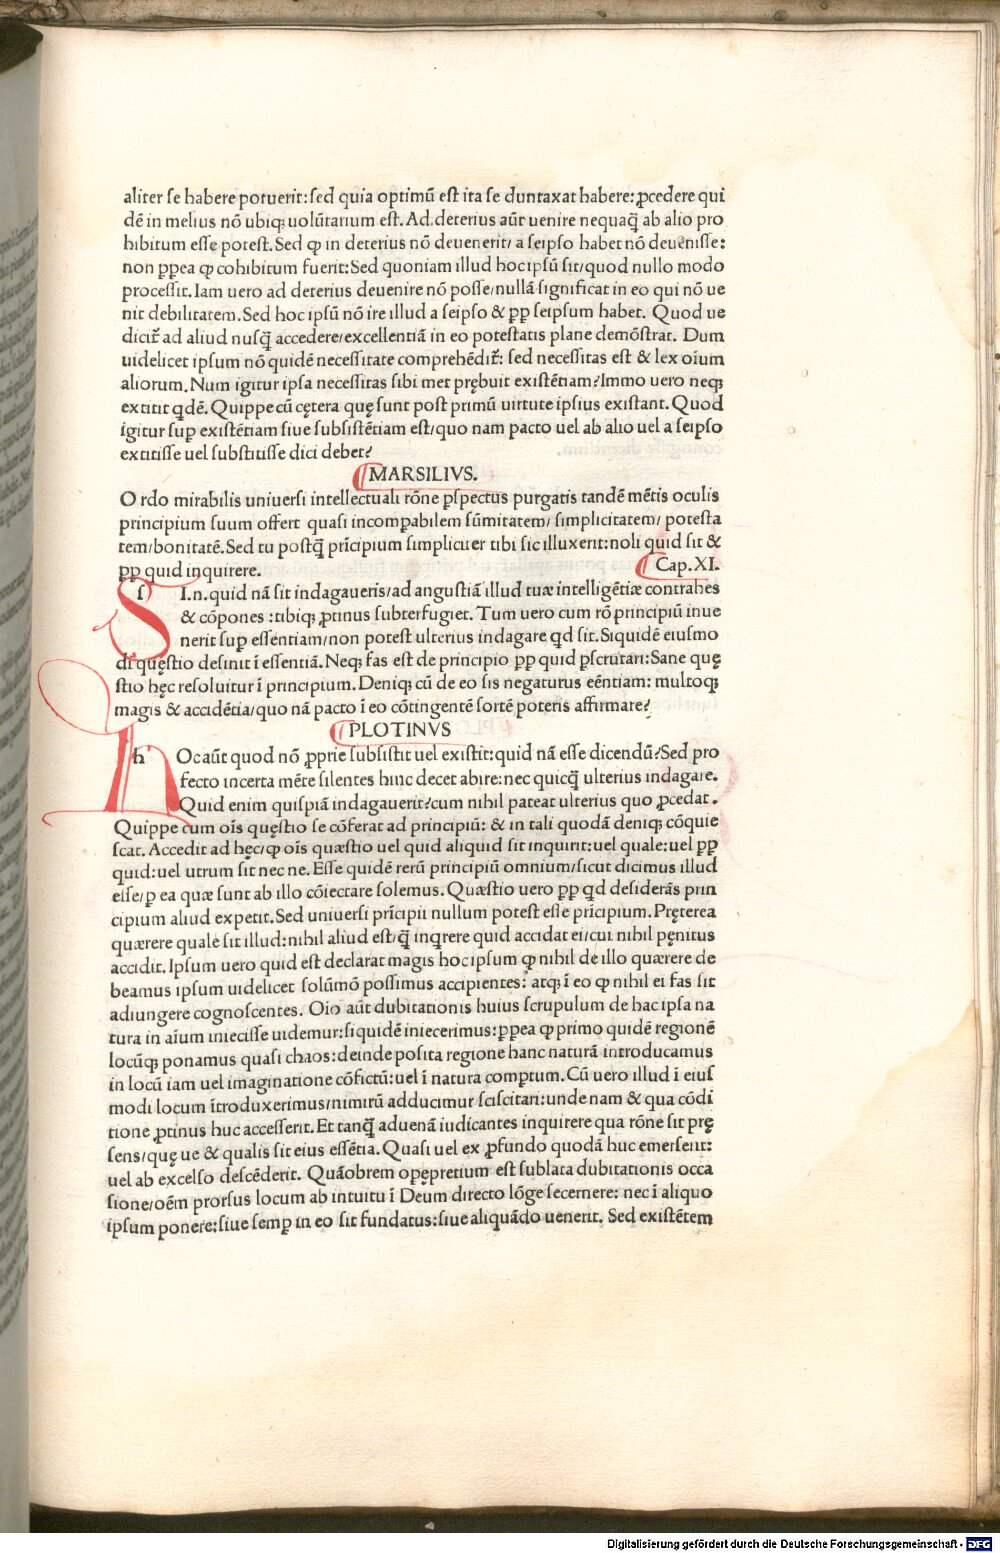 aliter se habere potuerit: sed quia optimū est ita se duntaxat habere: ꝓcedere qui
dē in melius nō ubiqꝫ uolūtarium est. Ad deterius aūt uenire nequaq̄ ab alio pro
hibitum esse potest. Sed ꝙ in deterius nō deuenerit/ a seipso habet nō deuenisse:
non ꝓpea ꝙ cohibitum fuerit: Sed quoniam illud hocipsū sit/quod nullo modo
processit. Iam uero ad deterius deuenire nō posse/nullā significat in eo qui nō ue
nit debilitatem. Sed hoc ipsū nō ire illud a seipso & ꝓp seipsum habet. Quod ue
dicit̄ ad aliud nusq̄ accedere/excellentiā in eo potestatis plane demōstrat. Dum
uidelicet ipsum nō quidē necessitate comprehēdit̄: sed necessitas est & lex oium
aliorum. Num igitur ipsa necessitas sibi met prębuit existētiam? Immo uero neqꝫ
extitit qdē. Quippe cū cętera quę sunt post primū uirtute ipsius existant. Quod
igitur suꝑ existētiam siue subsistētiam est/quo nam pacto uel ab alio uel a seipso
extitisse uel substitisse dici debet?
MARSILIVS.
O rdo mirabilis uniuersi intellectuali rōne ꝑspectus purgatis tandē mētis oculis
principium suum offert quasi incompabilem sūmitatem/ simplicitatem/ potesta
tem/bonitatē. Sed tu postq̄ prīcipium simpliciter tibi sic illuxerit: noli quid sit &
ꝓp quid inquirere.
Cap. XI.
S I.n. quid nā sit indagaueris/ad angustiā illud tuæ intelligētiæ contrahes
& cōpones: tibiqꝫ ꝓtinus subterfugiet. Tum uero cum rō principiū inue
nerit suꝑ essentiam/non potest ulterius indagare qd sit. Siquidē eiusmo
di quęstio desinit ī essentiā. Neqꝫ fas est de principio ꝓp quid ꝑscrutari: Sane quę
stio hęc resoluitur ī principium. Deniqꝫ cū de eo sis negaturus eēntiam: multoqꝫ
magis & accidētia/quo nā pacto ī eo cōtingentē sortē poteris affirmare?
PLOTINVS
h Oc aūt quod nō ꝓprie subsistit uel existit: quid nā esse dicendū? Sed pro
fecto incerta mēte silentes hinc decet abire: nec quicq̄ ulterius indagare.
Quid enim quispiā indagauerit? cum nihil pateat ulterius quo ꝓcedat.
Quippe cum oīs quęstio se cōferat ad principiū: & in tali quodā deniqꝫ cōquie
scat. Accedit ad hęc/ꝙ oīs quæstio uel quid aliquid sit inquirit: uel quale: uel ꝓp
quid: uel utrum sit nec ne. Esse quidē rerū principiū omnium/sicut dicimus illud
esse/ꝑ ea quæ sunt ab illo cōiectare solemus. Quæstio uero ꝓp qd desiderās prin
cipium aliud expetit. Sed uniuersi prīcipii nullum potest esse prīcipium. Pręterea
quærere quale sit illud: nihil aliud est/q̄ inqrere quid accidat ei/cui nihil pęnitus
accidit. Ipsum uero quid est declarat magis hocipsum ꝙ nihil de illo quærere de
beamus ipsum uidelicet solūmō possimus accipientes: atqꝫ ī eo ꝙ nihil ei fas sit
adiungere cognoscentes. Oio aūt dubitationis huius scrupulum de hac ipsa na
tura in aīum iniecisse uidemur: siquidē iniecerimus: ꝓpea ꝙ primo quidē regionē
locūqꝫ ponamus quasi chaos: deinde posita regione hanc naturā introducamus
in locū iam uel imaginatione cōfictū: uel ī natura comptum. Cū uero illud ī eius
modi locum ītroduxerimus/nimirū adducimur sciscitari: unde nam & qua cōdi
tione ꝓtinus huc accesserit. Et tanq̄ aduenā iudicantes inquirere qua rōne sit prę
sens/quę ue & qualis sit eius essētia. Quasi uel ex ꝓfundo quodā huc emerserit:
uel ab excelso descēderit. Quāobrem opępretium est sublata dubitationis occa
sione/oēm prorsus locum ab intuitu ī Deum directo lōge secernere: nec ī aliquo
ipsum ponere: siue semꝑ in eo sit fundatus: siue aliquādo uenerit. Sed existētem
Digitalisierung gefördert durch die Deutsche Forschungsgemeinschaft - DFG